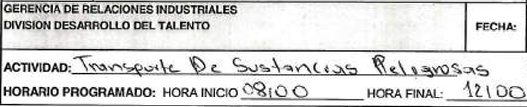 GERENCIA DE RELACIONES INDUSTRIALES
DIVISION DESARROLLO DEL TALENTO
FECHA:
ACTIVIDAD: Transporte De Sustancias Peligrosas
HORARIO PROGRAMADO: HORA INICIO 08:00 HORA FINAL: 12:00